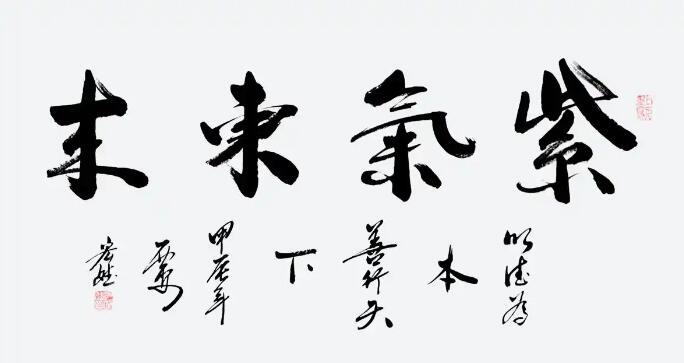 紫氣東来
以德為
本
善行天
下
甲辰年